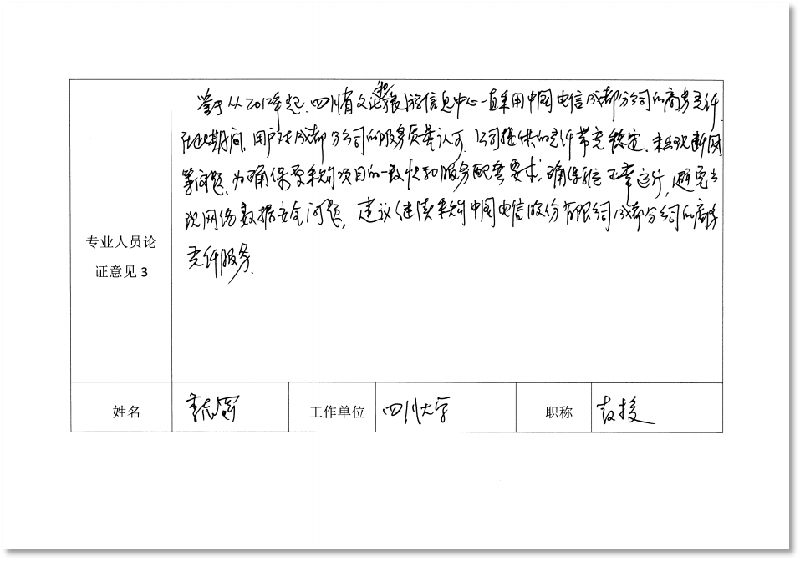 鉴于从2012年起,四川省文化和旅游信息中心一直采用中国电信成都分公司的商务光纤
在此期间,用户对成都分公司的服务质量认可,公司提供的光纤带宽稳定,未出现断网
等问题,为确保要采购项目的一致性和服务配套要求,确保维正常运行,避免出
现网络数据安全问题,建议继续采购中国电信股份有限公司成都分公司的商务
光纤服务.
专业人员论
证意见 3
姓名
工作单位 四川大学 职称 教授